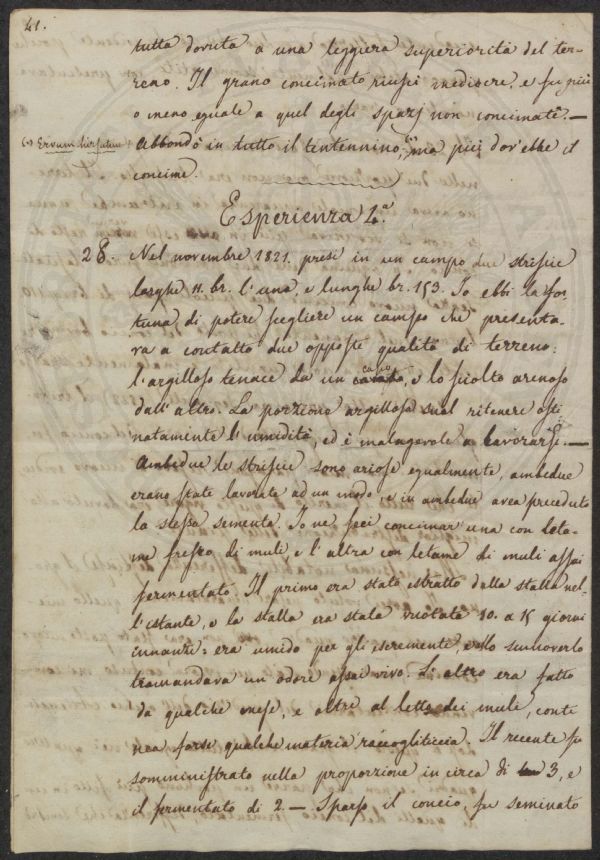 41.
tutta dovuta a una leggiera superiorità del ter-
reno. Il grano concimato riuscì mediocre, e fu più
o meno eguale a quel degli spazj non concimati. —
(*) Ervum hirsutum
Abbondò in tutto il tentennino, ma più dov'ebbe il
concime.
Esperienza 4.ª
28. Nel novembre 1821. presi in un campo due striscie
larghe 11. br. l'una, e lunghe br. 153. Io ebbi la for-
tuna, di potere scegliere un campo che presenta-
va a contatto due opposte qualità di terreno:
l'argilloso tenace da un capo, e lo sciolto arenoso
dall'altro. La porzione argillosa suol ritenere osti
natamente l'umidità, ed è malagevole a lavorarsi. —
Ambedue le striscie sono ariose egualmente, ambedue
erano state lavorate ad un modo, e in ambedue avea preceduto
la stessa sementa. Io ne feci concimar una con leta-
me fresco di muli, e l'altra con letame di muli assai
fermentato. Il primo era stato estratto dalla stalla nel-
l'istante, e la stalla era stata vuotata 10. a 15 giorni
innanzi: era umido per gli escrementi, e allo smuoverlo
tramandava un odore assai vivo. L'altro era fatto
da qualche mese, e oltre al letto dei muli, conte
nea forse qualche materia raccogliticcia. Il recente fu
somministrato nella proporzione in circa di 3, e
il fermentato di 2 — Sparso il concio, fu seminato